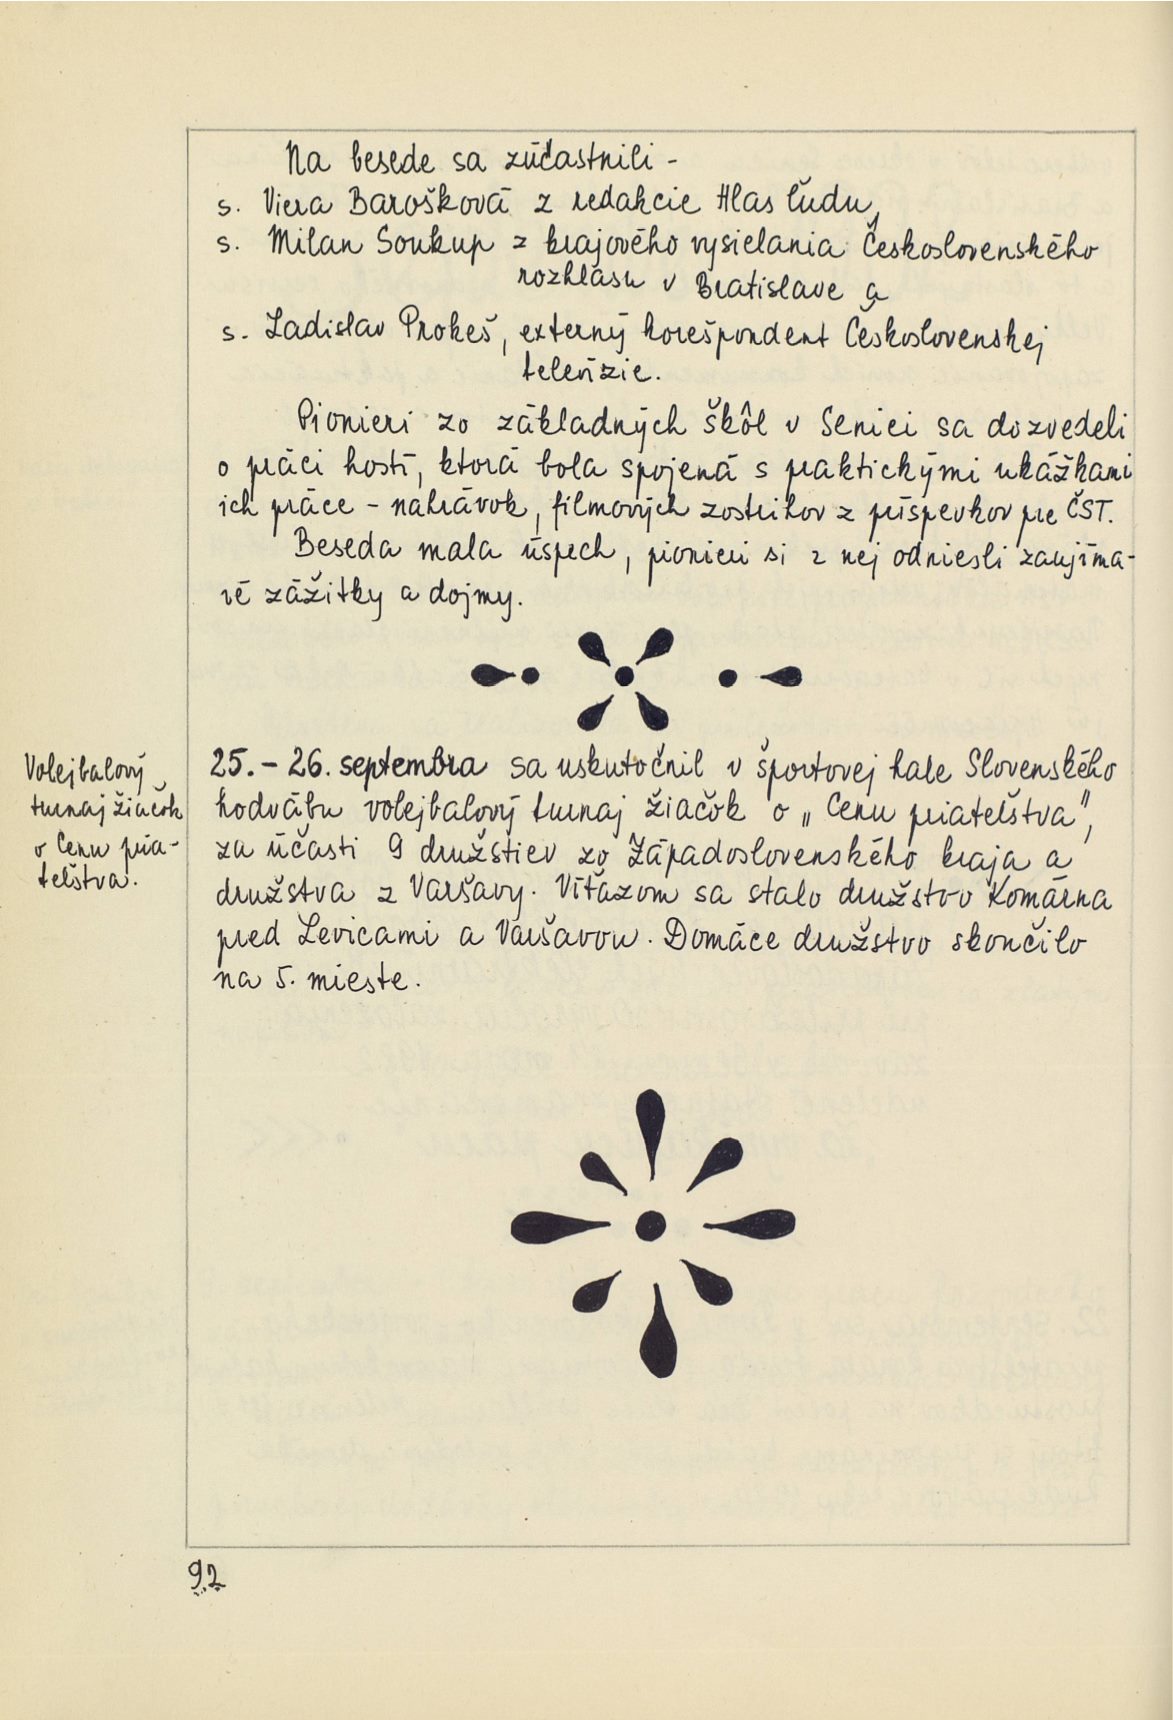 Na besede sa zúčastnili -
s. Viera Barošková z redakcie Hlas ľudu,
s. Milan Soukup z krajového vysielania Československého
rozhlasu v Bratislave a
s. Ladislav Prokeš, externý korešpondent Československej
televízie.
Pionieri zo základných škôl v Senici sa dozvedeli
o práci hostí, ktorá bola spojená s praktickými ukážkami
ich práce - nahrávok, filmových zostrihov z príspevkov pre ČST.
Beseda mala úspech, pionieri si z nej odniesli zaujíma-
vé zážitky a dojmy.
Volejbalový
turnaj žiačok
o Cenu pria-
teľstva.
25. - 26. septembra sa uskutočnil v športovej hale Slovenského
hodvábu volejbalový turnaj žiačok o „Cenu priateľstva",
za účasti 9 družstiev zo Západoslovenského kraja a
družstva z Varšavy. Víťazom sa stalo družstvo Komárna
pred Levicami a Varšavou. Domáce družstvo skončilo
na 5. mieste.
92